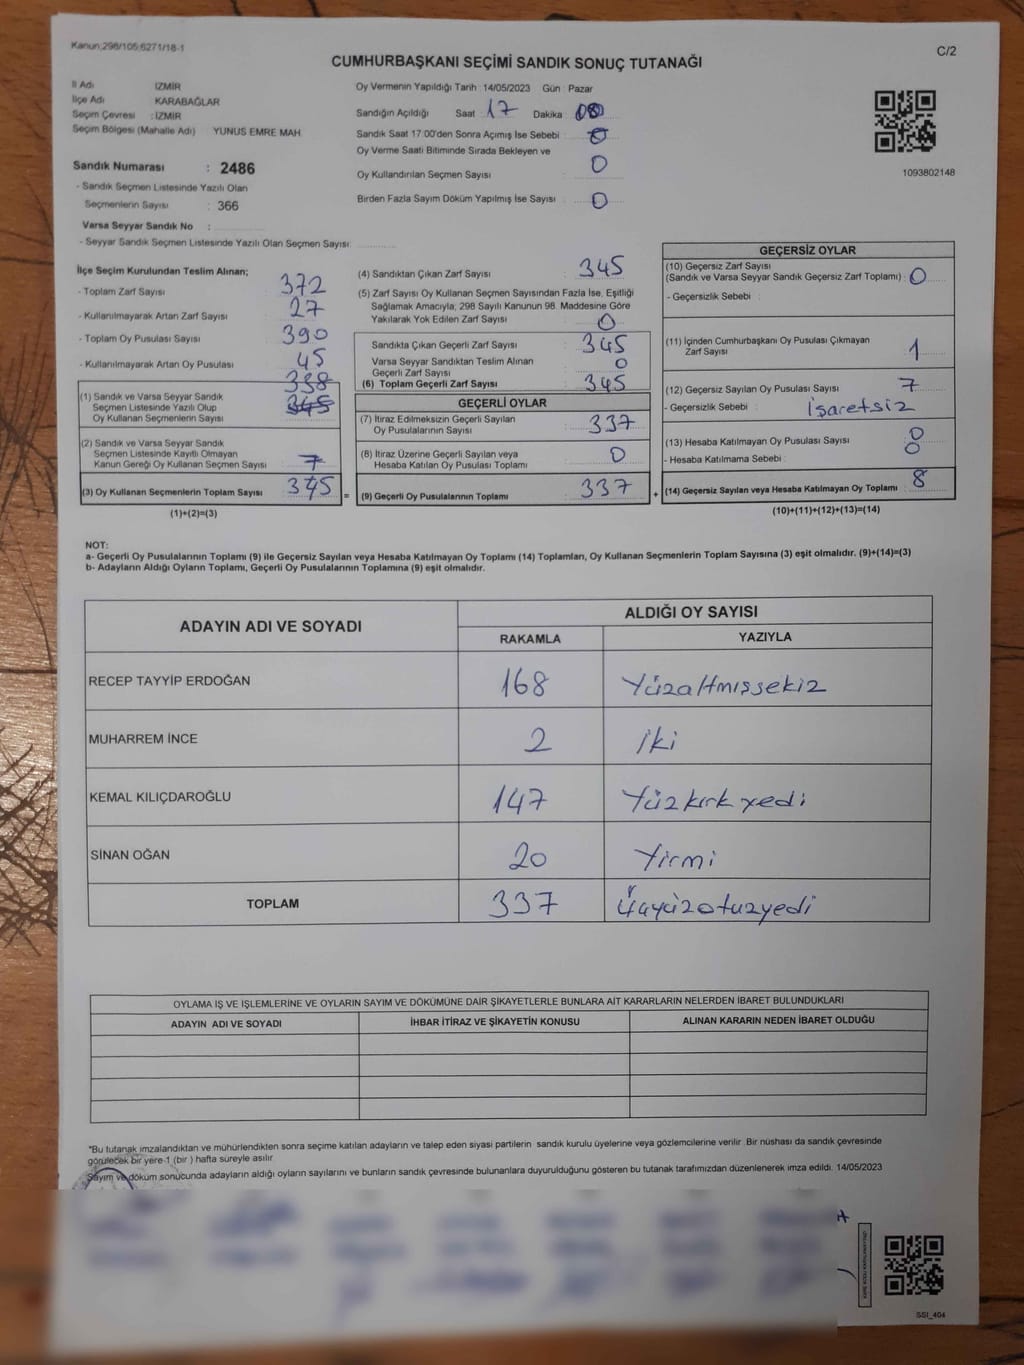 Kanun;298/105;6271/18-1
C/2
CUMHURBAŞKANI SEÇİMİ SANDIK SONUÇ TUTANAĞI
İl Adı İZMİR
İlçe Adı KARABAĞLAR
Seçim Çevresi : İZMİR
Seçim Bölgesi (Mahalle Adı) YUNUS EMRE MAH.
Sandık Numarası : 2486
- Sandık Seçmen Listesinde Yazılı Olan
Seçmenlerin Sayısı : 366
Varsa Seyyar Sandık No :
- Seyyar Sandık Seçmen Listesinde Yazılı Olan Seçmen Sayısı
Oy Vermenin Yapıldığı Tarih :14/05/2023 Gün : Pazar
Sandığın Açıldığı Saat : 17 Dakika : 00
Sandık Saat 17:00'den Sonra Açımış İse Sebebi : 0
Oy Verme Saati Bitiminde Sırada Bekleyen ve
Oy Kullandırılan Seçmen Sayısı : 0
Birden Fazla Sayım Döküm Yapılmış İse Sayısı : 0
1093802148
İlçe Seçim Kurulundan Teslim Alınan;
- Toplam Zarf Sayısı : 372
- Kullanılmayarak Artan Zarf Sayısı : 27
- Toplam Oy Pusulası Sayısı : 390
- Kullanılmayarak Artan Oy Pusulası : 45
338
(1) Sandık ve Varsa Seyyar Sandık
Seçmen Listesinde Yazılı Olup
Oy Kullanan Seçmenlerin Sayısı : 345
(2) Sandık ve Varsa Seyyar Sandık
Seçmen Listesinde Kayıtlı Olmayan
Kanun Gereği Oy Kullanan Seçmen Sayısı : 7
(3) Oy Kullanan Seçmenlerin Toplam Sayısı : 345 =
(1)+(2)=(3)
(4) Sandıktan Çıkan Zarf Sayısı : 345
(5) Zarf Sayısı Oy Kullanan Seçmen Sayısından Fazla İse, Eşitliği
Sağlamak Amacıyla; 298 Sayılı Kanunun 98. Maddesine Göre
Yakılarak Yok Edilen Zarf Sayısı : 0
Sandıkta Çıkan Geçerli Zarf Sayısı : 345
Varsa Seyyar Sandıktan Teslim Alınan
Geçerli Zarf Sayısı : 0
(6) Toplam Geçerli Zarf Sayısı : 345
GEÇERLİ OYLAR
(7) İtiraz Edilmeksizin Geçerli Sayılan
Oy Pusulalarının Sayısı : 337
(8) İtiraz Üzerine Geçerli Sayılan veya
Hesaba Katılan Oy Pusulası Toplamı : 0
(9) Geçerli Oy Pusulalarının Toplamı : 337 +
GEÇERSİZ OYLAR
(10) Geçersiz Zarf Sayısı
(Sandık ve Varsa Seyyar Sandık Geçersiz Zarf Toplamı) : 0
- Geçersizlik Sebebi :
(11) İçinden Cumhurbaşkanı Oy Pusulası Çıkmayan
Zarf Sayısı : 1
(12) Geçersiz Sayılan Oy Pusulası Sayısı : 7
- Geçersizlik Sebebi : İşaretsiz
(13) Hesaba Katılmayan Oy Pusulası Sayısı : 0
- Hesaba Katılmama Sebebi : 0
(14) Geçersiz Sayılan veya Hesaba Katılmayan Oy Toplamı : 8
(10)+(11)+(12)+(13)=(14)
NOT:
a- Geçerli Oy Pusulalarının Toplamı (9) ile Geçersiz Sayılan veya Hesaba Katılmayan Oy Toplamı (14) Toplamları, Oy Kullanan Seçmenlerin Toplam Sayısına (3) eşit olmalıdır. (9)+(14)=(3)
b- Adayların Aldığı Oyların Toplamı, Geçerli Oy Pusulalarının Toplamına (9) eşit olmalıdır.
ADAYIN ADI VE SOYADI ALDIĞI OY SAYISI
RAKAMLA YAZIYLA
RECEP TAYYİP ERDOĞAN 168 Yüzaltmışsekiz
MUHARREM İNCE 2 İki
KEMAL KILIÇDAROĞLU 147 Yüzkırkyedi
SİNAN OĞAN 20 Yirmi
TOPLAM 337 Üçyüzotuzyedi
OYLAMA İŞ VE İŞLEMLERİNE VE OYLARIN SAYIM VE DÖKÜMÜNE DAİR ŞİKAYETLERLE BUNLARA AİT KARARLARIN NELERDEN İBARET BULUNDUKLARI
ADAYIN ADI VE SOYADI İHBAR İTİRAZ VE ŞİKAYETİN KONUSU ALINAN KARARIN NEDEN İBARET OLDUĞU
"Bu tutanak imzalandıktan ve mühürlendikten sonra seçime katılan adayların ve talep eden siyasi partilerin sandık kurulu üyelerine veya gözlemcilerine verilir. Bir nüshası da sandık çevresinde
görülecek bir yere 1 (bir ) hafta süreyle asılır.
Sayım ve döküm sonucunda adayların aldığı oyların sayılarını ve bunların sandık çevresinde bulunanlara duyurulduğunu gösteren bu tutanak tarafımızdan düzenlenerek imza edildi. 14/05/2023
SSI_404